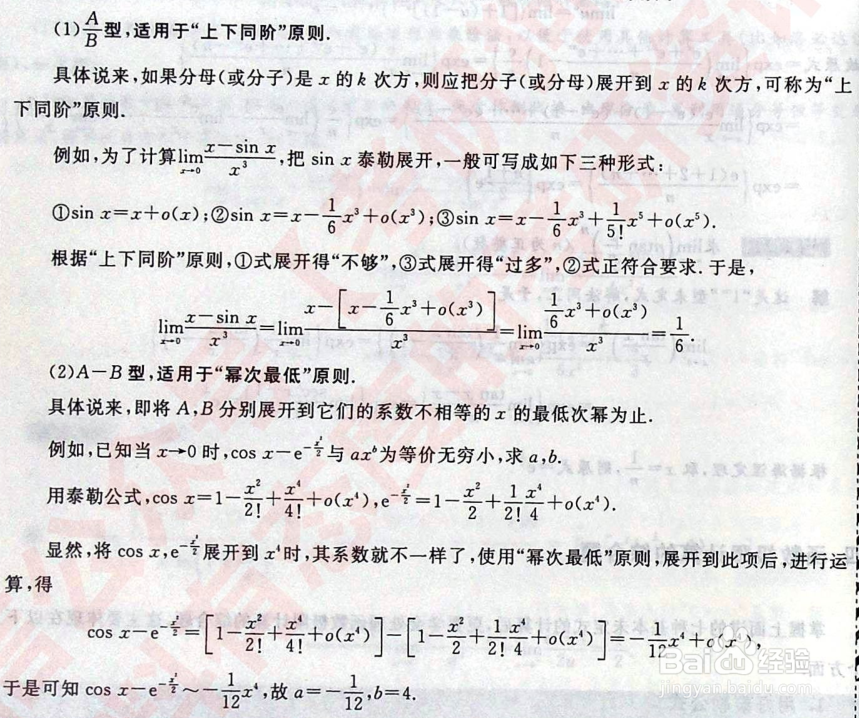 (1) A/B 型,适用于“上下同阶”原则.
具体说来,如果分母(或分子)是 x 的 k 次方,则应把分子(或分母)展开到 x 的 k 次方,可称为“上
下同阶”原则.
例如,为了计算 lim_{x→0} (x−sin x)/x³,把 sin x 泰勒展开,一般可写成如下三种形式:
①sin x=x+o(x);②sin x=x−(1/6)x³+o(x³);③sin x=x−(1/6)x³+(1/5!)x⁵+o(x⁵).
根据“上下同阶”原则,①式展开得“不够”,③式展开得“过多”,②式正符合要求.于是,
lim_{x→0} (x−sin x)/x³=lim_{x→0} (x−[x−(1/6)x³+o(x³)])/x³=lim_{x→0} ((1/6)x³+o(x³))/x³=1/6.
(2)A−B 型,适用于“幂次最低”原则.
具体说来,即将 A,B 分别展开到它们的系数不相等的 x 的最低次幂为止.
例如,已知当 x→0 时,cos x−e^{−x²/2} 与 ax^b 为等价无穷小,求 a,b.
用泰勒公式,cos x=1−x²/2!+x⁴/4!+o(x⁴),e^{−x²/2}=1−x²/2+(1/2!)(x⁴/4)+o(x⁴).
显然,将 cos x,e^{−x²/2} 展开到 x⁴ 时,其系数就不一样了,使用“幂次最低”原则,展开到此项后,进行运
算,得
cos x−e^{−x²/2}=[1−x²/2!+x⁴/4!+o(x⁴)]−[1−x²/2+(1/2!)(x⁴/4)+o(x⁴)]=−(1/12)x⁴+o(x⁴),
于是可知 cos x−e^{−x²/2}~−(1/12)x⁴,故 a=−1/12,b=4.
Baidu 经验
jingyan.baidu.com